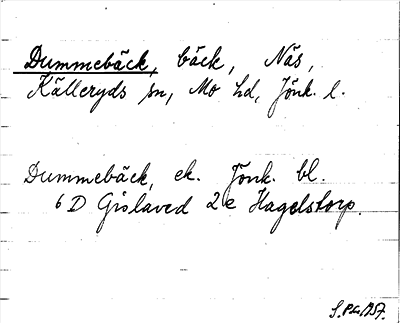 Dummebäck, bäck, Näs,
Källeryds sn, Mo hd, Jönk. l.
Dummebäck, ek. Jönk. bl.
6 D Gislaved 2 e Hagelstorp.